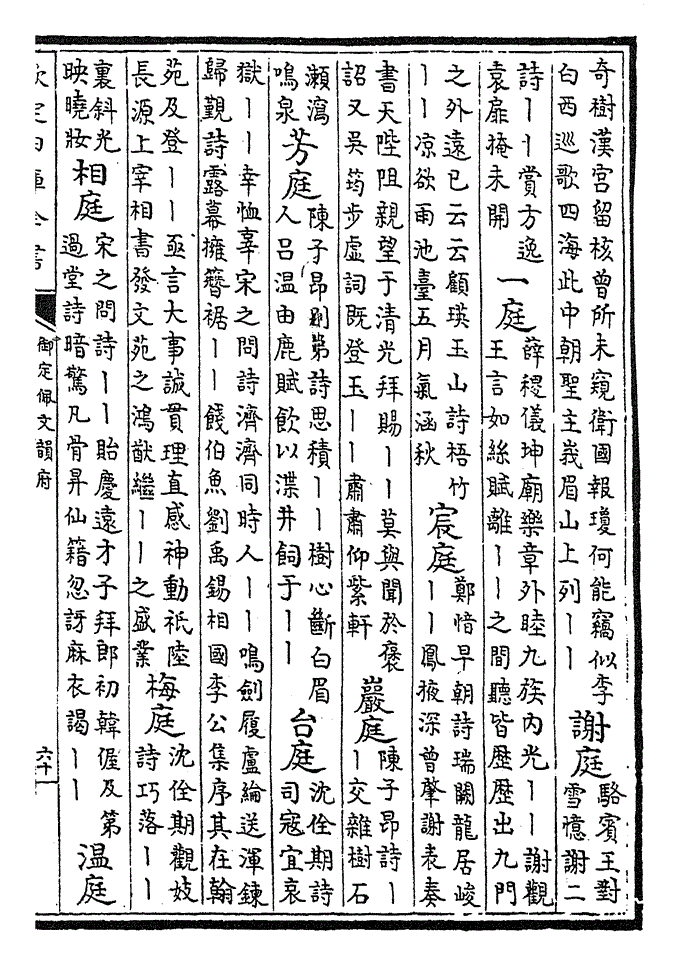 奇樹漢宮留核曾所未窺衛國報瓊何能竊似李
白西巡歌四海此中朝聖主峩眉山上列丨丨
謝庭
駱賓王對
雪憶謝二
詩丨丨賞方逸
袁扉掩未開
一庭
薛稷儀坤廟樂章外睦九族內光丨丨謝觀
王言如絲賦離丨丨之間聽皆歷歷出九門
之外遠已云云顧瑛玉山詩梧竹
丨丨凉欲雨池臺五月氣涵秋
宸庭
鄭愔早朝詩瑞闕龍居峻
丨丨鳳掖深曾肇謝表奏
書天陛阻親望于清光拜賜丨丨莫與聞於褒
詔又吳筠步虛詞既登玉丨丨肅肅仰紫軒
巖庭
陳子昂詩丨
丨交雜樹石
瀨瀉
鳴泉
芳庭
陳子昂別弟詩思積丨丨樹心斷白眉
人呂温由鹿賦飲以渫井飼于丨丨
台庭
沈佺期詩
司寇宜哀
獄丨丨幸恤辜宋之問詩濟濟同時人丨丨鳴劍履盧綸送渾鍊
歸覲詩露幕擁簪裾丨丨餞伯魚劉禹錫相國李公集序其在翰
苑及登丨丨亟言大事誠貫理直感神動祇陸
長源上宰相書發文苑之鴻猷繼丨丨之盛業
梅庭
沈佺期觀妓
詩巧落丨丨
裏斜光
映曉妝
相庭
宋之問詩丨丨貽慶遠才子拜郎初韓偓及第
過堂詩暗驚凡骨昇仙籍忽訝麻衣謁丨丨
温庭
欽定四庫全書
御定佩文韻府
六十